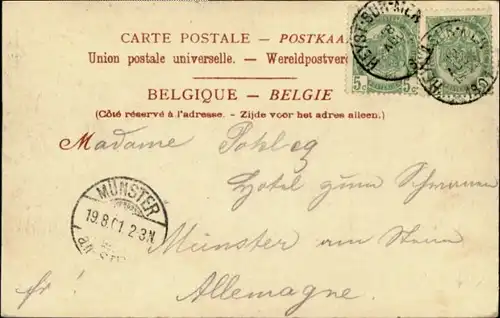 CARTE POSTALE — POSTKAA
Union postale universelle. — Wereldpostver
BELGIQUE — BELGIE
(Côté réservé à l'adresse. - Zijde voor het adres alleen.)
HEYST-SUR-MER
5c 5c
Madame Pohl
Hotel zum Schwanen
MÜNSTER
19.8.01. 2-3N.
Münster am Stein
Allemagne.